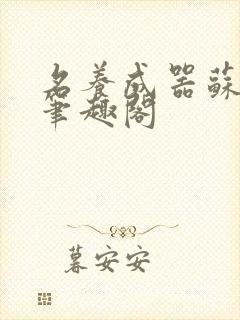 名養成器蘇
筆趣閣
暮安安